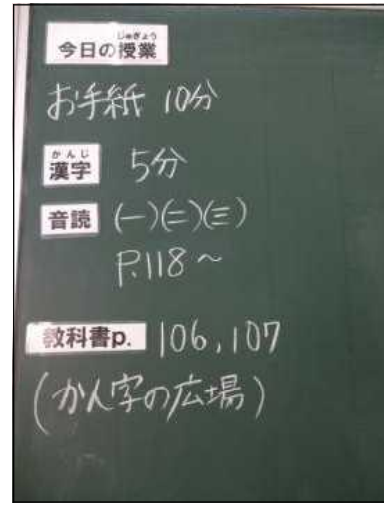 今日の授業
お手紙 10分
漢字 5分
音読 (一)(二)(三)
P.118~
教科書p. 106,107
(かん字の広場)